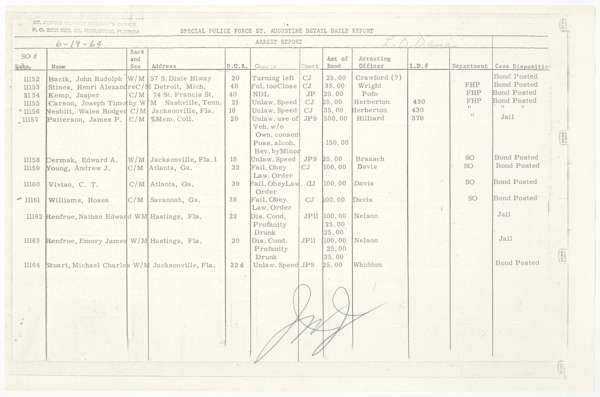 ST. JOHNS COUNTY SHERIFF'S OFFICE
P. O. BOX 829, ST. AUGUSTINE, FLORIDA
SPECIAL POLICE FORCE ST. AUGUSTINE DETAIL DAILY REPORT
6-19-64 ARREST REPORT
SO # Name Race and Sex Address D.O.B. Charge Court Amt of Bond Arresting Officer I.D.# Department Case Disposition
11152 Bacik, John Rudolph W/M 57 S. Dixie Hiway 20 Turning left CJ 25.00 Crawford (?) Bond Posted
11153 Stines, Henri Alexandre C/M Detroit, Mich. 40 Fol. too Close CJ 35.00 Wright FHP Bond Posted
11154 Kemp, Jasper C/M 74 St. Francis St. 40 NDL JP 25.00 Pofo FHP Bond Posted
11155 Carson, Joseph Timothy W/M Nashville, Tenn. 21 Unlaw. Speed CJ 25.00 Herberton 430 FHP Bond Posted
11156 Nesbitt, Wales Rodger C/M Jacksonville, Fla. 18 Unlaw. Speed CJ 35.00 Herberton 430 " " "
11157 Patterson, James P. C/M %Mem. Coll. 20 Unlaw. use of JP9 500.00 Hilliard 379 " Jail
Veh. w/o
Own. consent
Poss. alcoh. 150.00
Bev. by Minor
11158 Cermak, Edward A. W/M Jacksonville, Fla. 18 Unlaw. Speed JP9 25.00 Braasch SO Bond Posted
11159 Young, Andrew J. C/M Atlanta, Ga. 32 Fail. Obey CJ 100.00 Davis SO Bond Posted
Law. Order
11160 Vivian, C. T. C/M Atlanta, Ga. 39 Fail. Obey Law. CJ 100.00 Davis SO Bond Posted
Order
11161 Williams, Hosea C/M Savannah, Ga. 38 Fail. Obey CJ 100.00 Davis SO Bond Posted
Law. Order
11162 Renfroe, Nathan Edward WM Hastings, Fla. 22 Dis. Cond. JP11 100.00 Nelson Jail
Profanity 25.00
Drunk 25.00
11163 Renfroe, Emory James W/M Hastings, Fla. 20 Dis. Cond. JP11 100.00 Nelson Jail
Profanity 25.00
Drunk 25.00
11164 Stuart, Michael Charles W/M Jacksonville, Fla. 22 Unlaw. Speed JP9 25.00 Whiddon Bond Posted